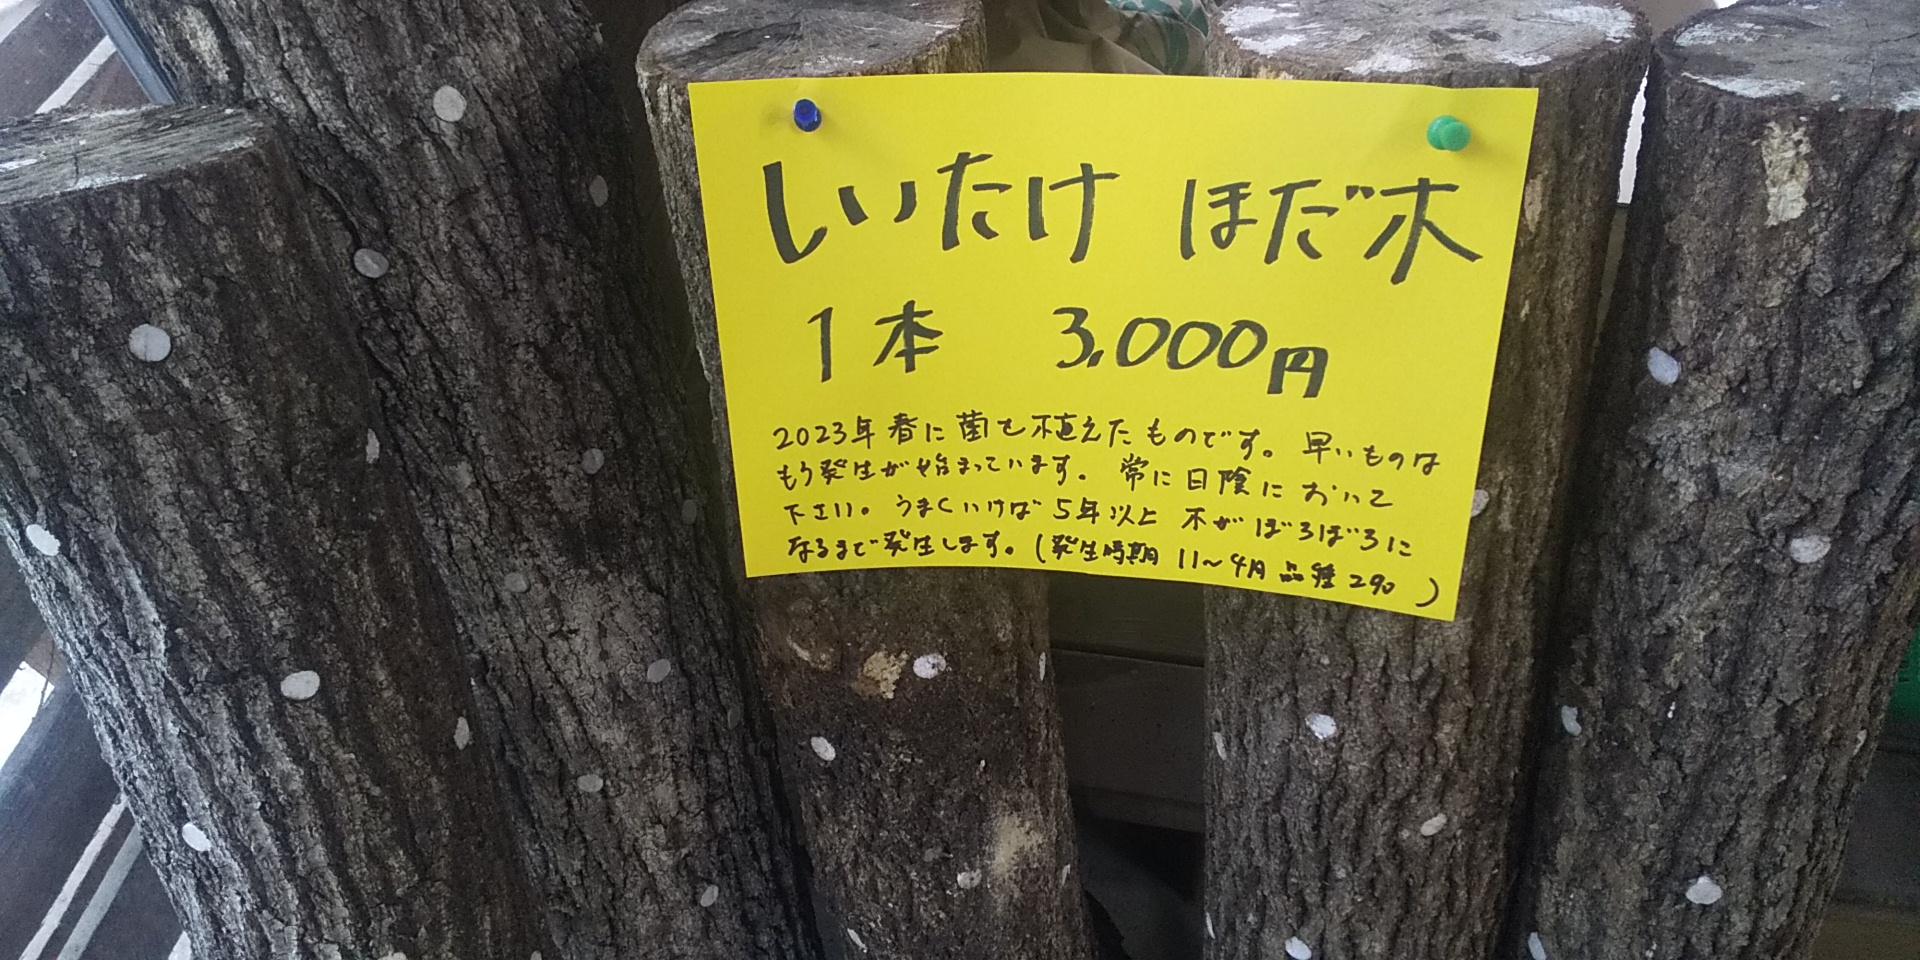 しいたけ ほだ木
1本 3,000円
2023年春に菌を植えたものです。早いものは
もう発生が始まっています。常に日陰において
下さい。うまくいけば5年以上 木がぼろぼろに
なるまで発生します。(発生時期 11〜4月 品種290 )